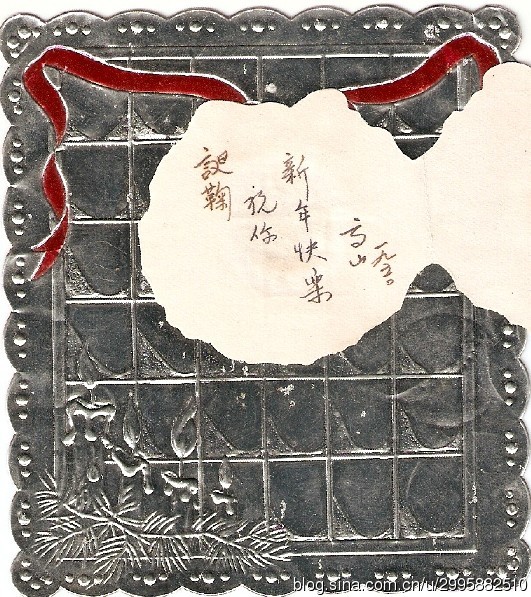 鞠
祝你
新年快樂
高山
一九五〇
blog.sina.com.cn/u/2995882510